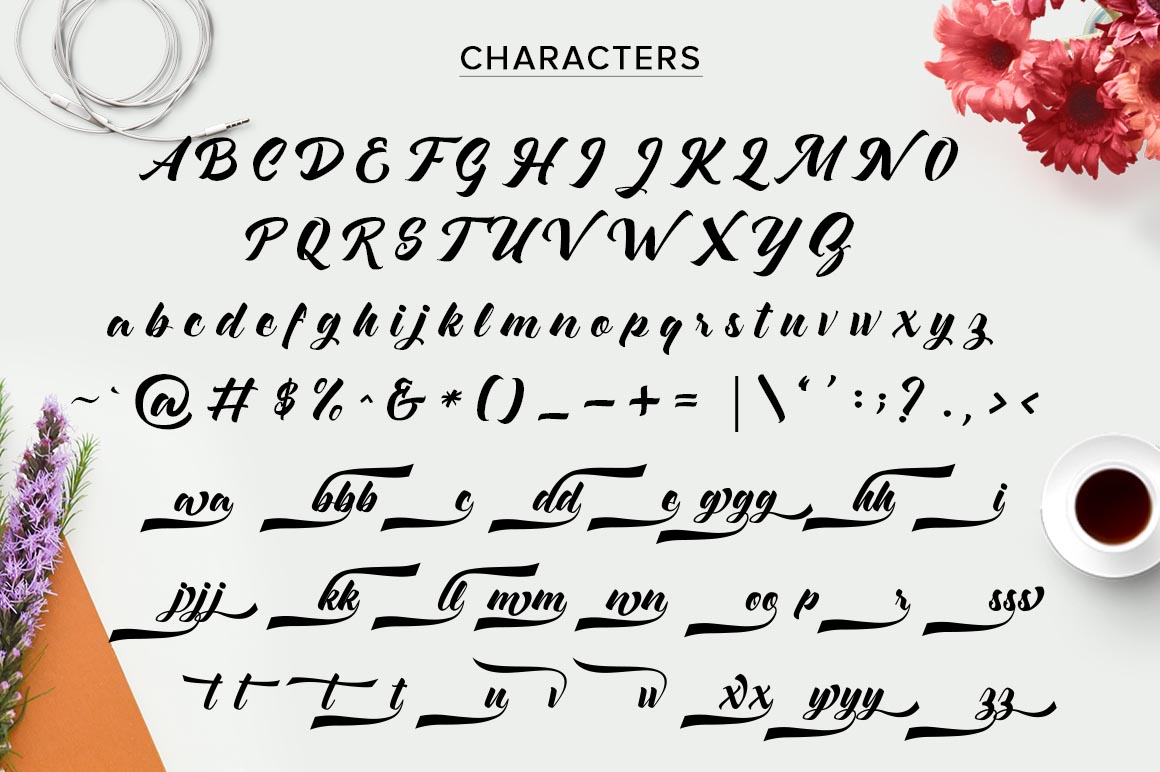 CHARACTERS
A B C D E F G H I J K L M N O
P Q R S T U V W X Y Z
a b c d e f g h i j k l m n o p q r s t u v w x y z
~ ` @ # $ % ^ & * ( ) _ – + = | \ ‘ ’ : ; ? . , > <
aa bbb c dd e ggg hh i
jjj kk ll mm nn oo p r sss
t t t t u v w xx yyy zz